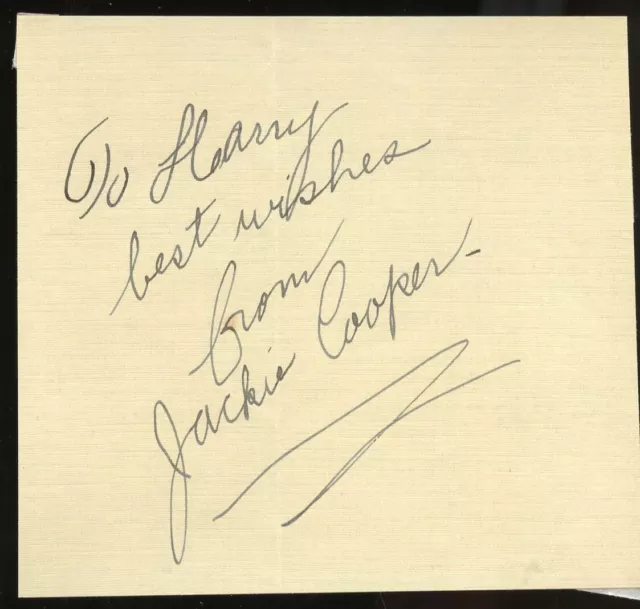 To Harry
best wishes
from
Jackie Cooper-